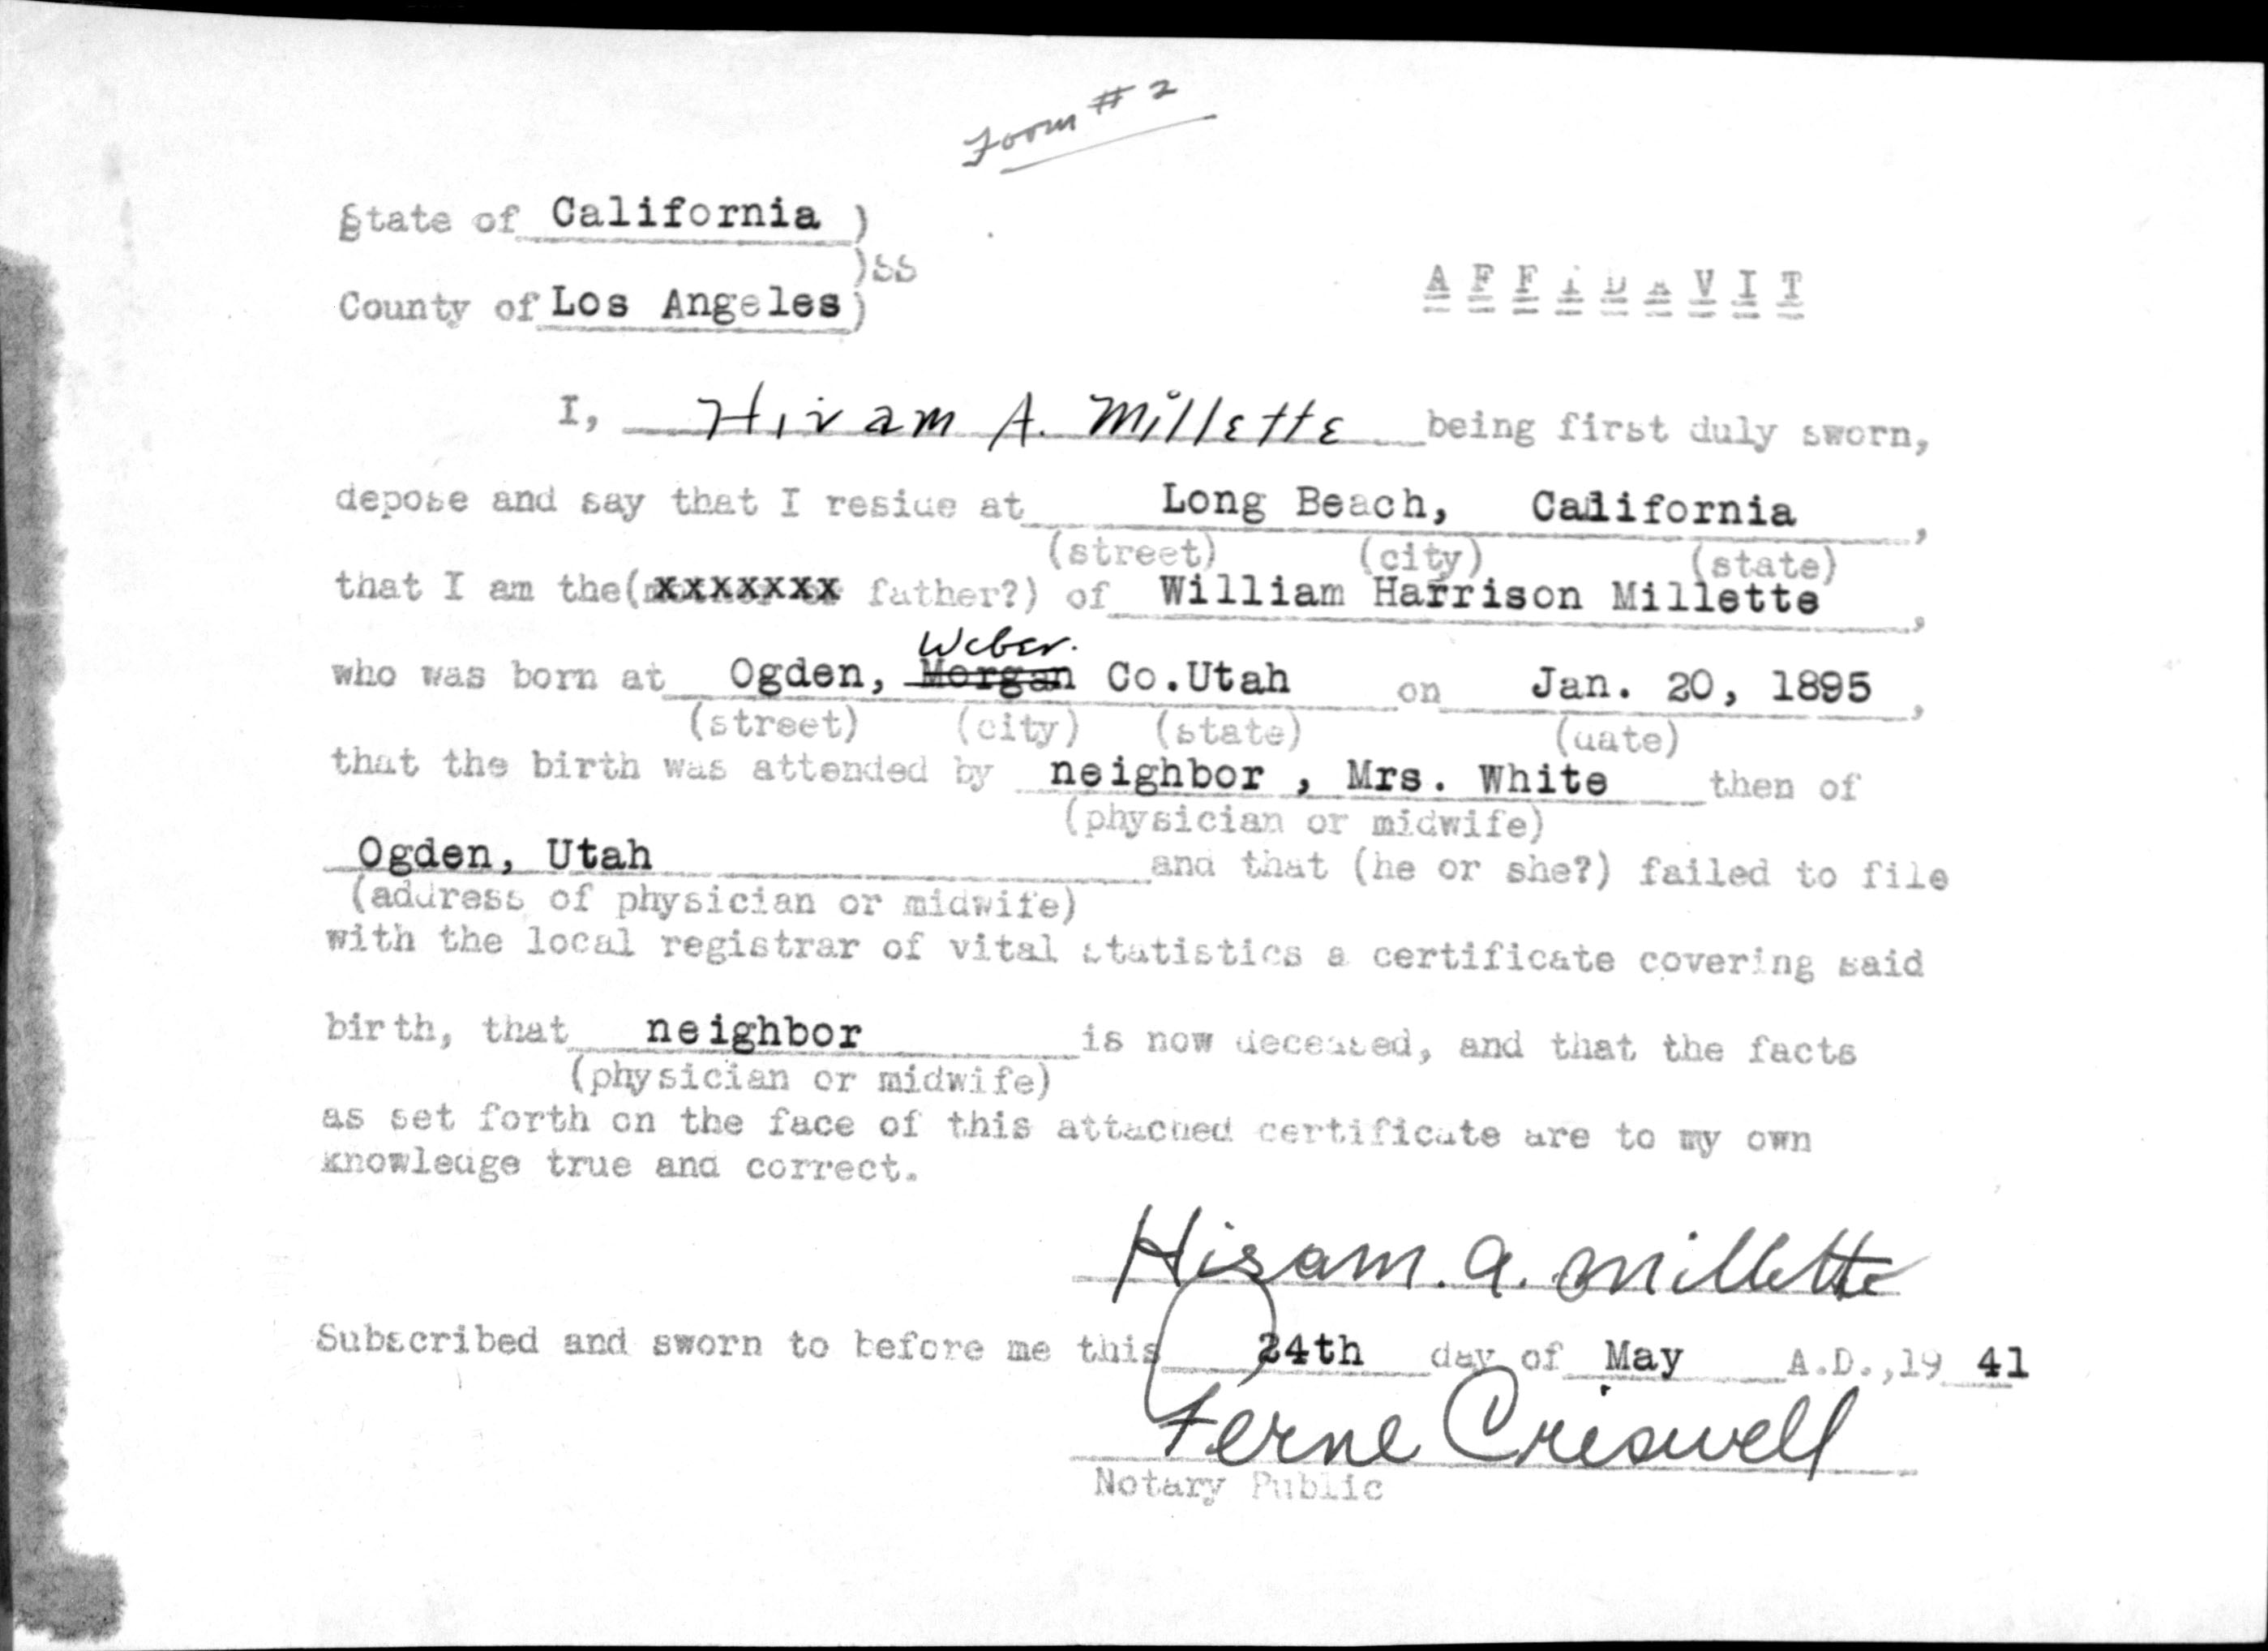 Form #2
State of California )
)ss
County of Los Angeles)
AFFIDAVIT
I, Hiram A. Millette being first duly sworn,
depose and say that I reside at Long Beach, California,
(street) (city) (state)
that I am the(xxxxxxx father?) of William Harrison Millette,
Weber.
who was born at Ogden, Morgan Co.Utah on Jan. 20, 1895,
(street) (city) (state) (date)
that the birth was attended by neighbor , Mrs. White then of
(physician or midwife)
Ogden, Utah and that (he or she?) failed to file
(address of physician or midwife)
with the local registrar of vital statistics a certificate covering said
birth, that neighbor is now deceased, and that the facts
(physician or midwife)
as set forth on the face of this attached certificate are to my own
knowledge true and correct.
Hiram. A. Millette
Subscribed and sworn to before me this 24th day of May A.D.,19 41
Ferne Criswell
Notary Public